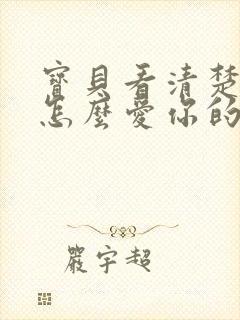 寶貝看清楚
怎麼愛你的
嚴宇超